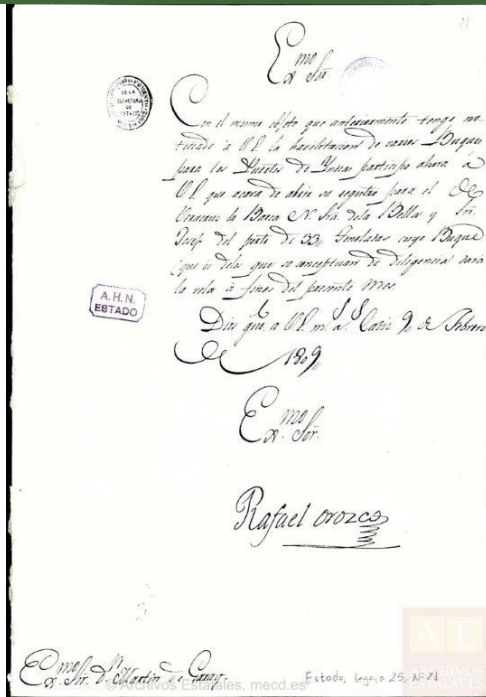 21
Exmo Sor
Con el mismo objeto que anteriormente tengo no-
ticiado à V.E. la havilitacion de varios Buques
para los Puertos de Yndias participo ahora à
V.E. que acava de abrir su registro para el de
Veracruz la Barca N. Sra. dela Bella y Sn.
Josef del porte de 33, Toneladas cuyo Buque
que es delos que se conceptuan de diligencia dará
la vela à fines del presente mes.
Dios gûe. à V.E. m. a. Cadiz 9, de Febrero
de 1809,
Exmo Sor.
Rafael Orozco
Exmo Sor. Dn. Martin de Garay.
A.H.N.
ESTADO
Estado, legajo 25, Nº 21
© Archivos Estatales, mecd.es
AE
ARCHIVOS
ESTATALES